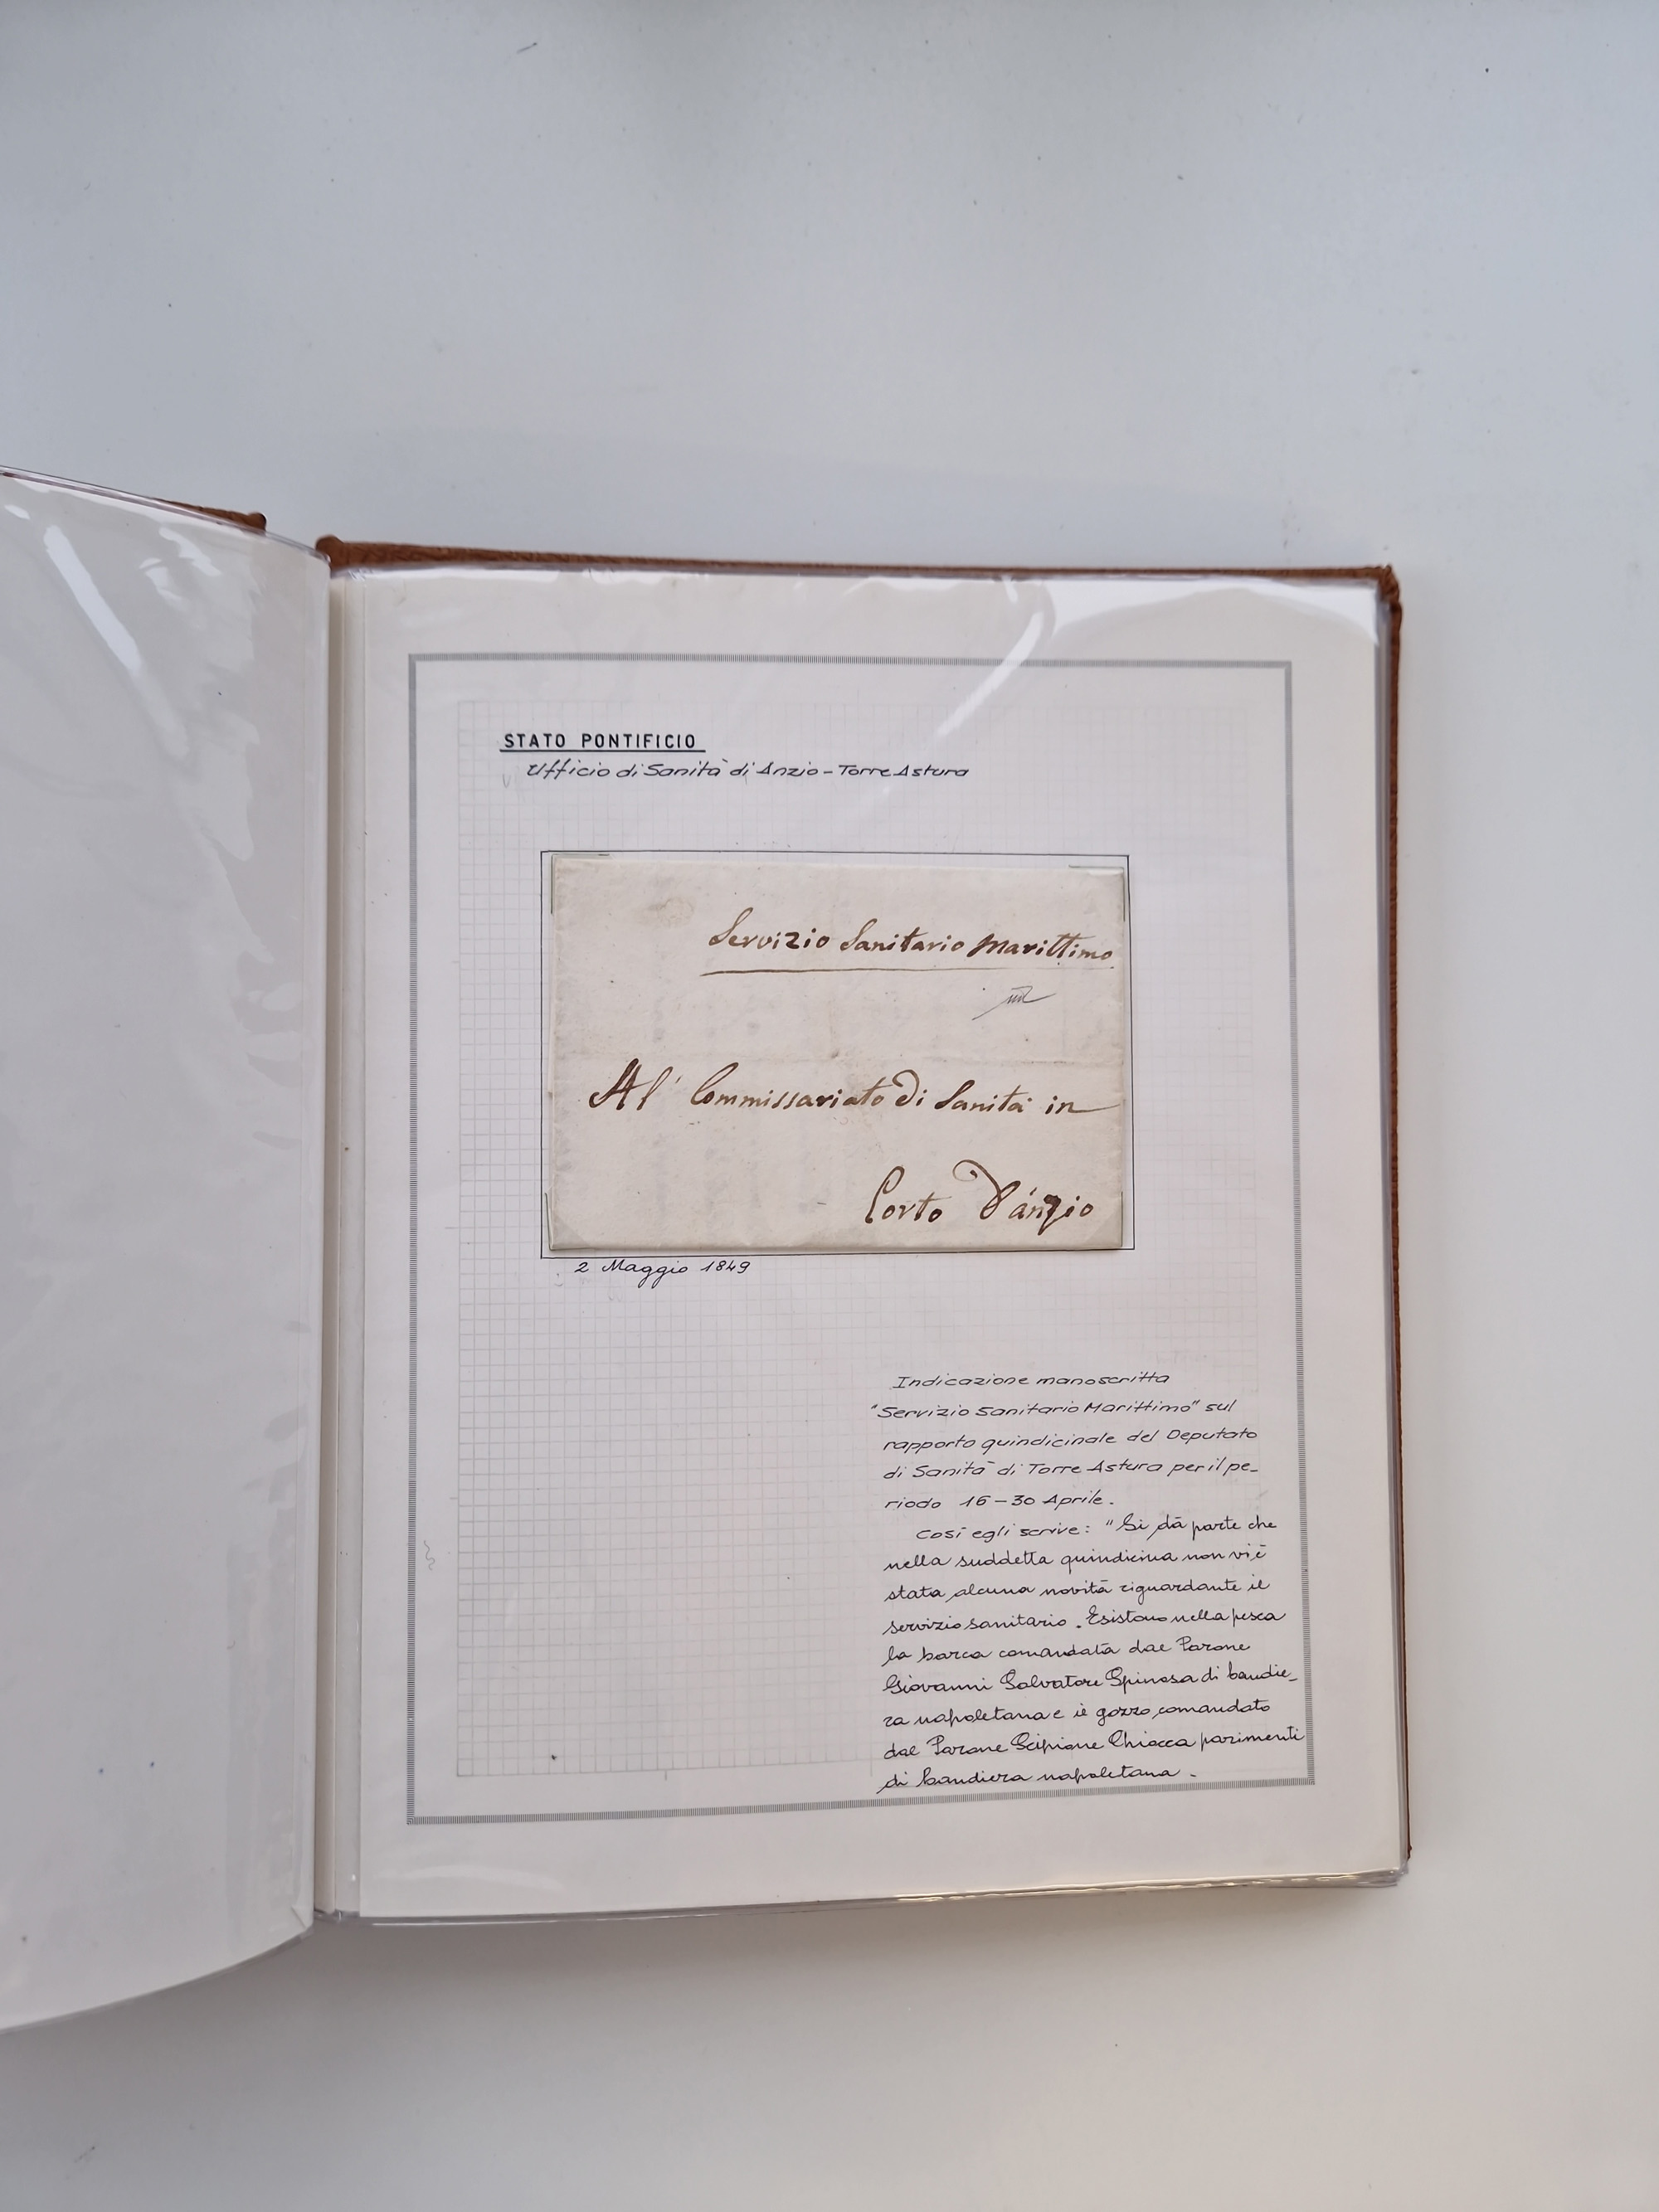 STATO PONTIFICIO
Ufficio di Sanità di Anzio - Torre Astura
Servizio Sanitario Marittimo
Al' Commissariato Di Sanità in
Porto D'anzio
2 Maggio 1849
Indicazione manoscritta
"Servizio Sanitario Marittimo" sul
rapporto quindicinale del Deputato
di Sanità di Torre Astura per il pe-
riodo 16-30 Aprile.
Così egli scrive: "Si dà parte che
nella suddetta quindicina non vi è
stata alcuna novità riguardante il
servizio sanitario. Esistono nella pesca
la barca comandata dal Parone
Giovanni Salvatore Spinosa di bandie-
ra napoletana e il gozzo comandato
dal Parone Scipione Chiocca parimenti
di bandiera napoletana.